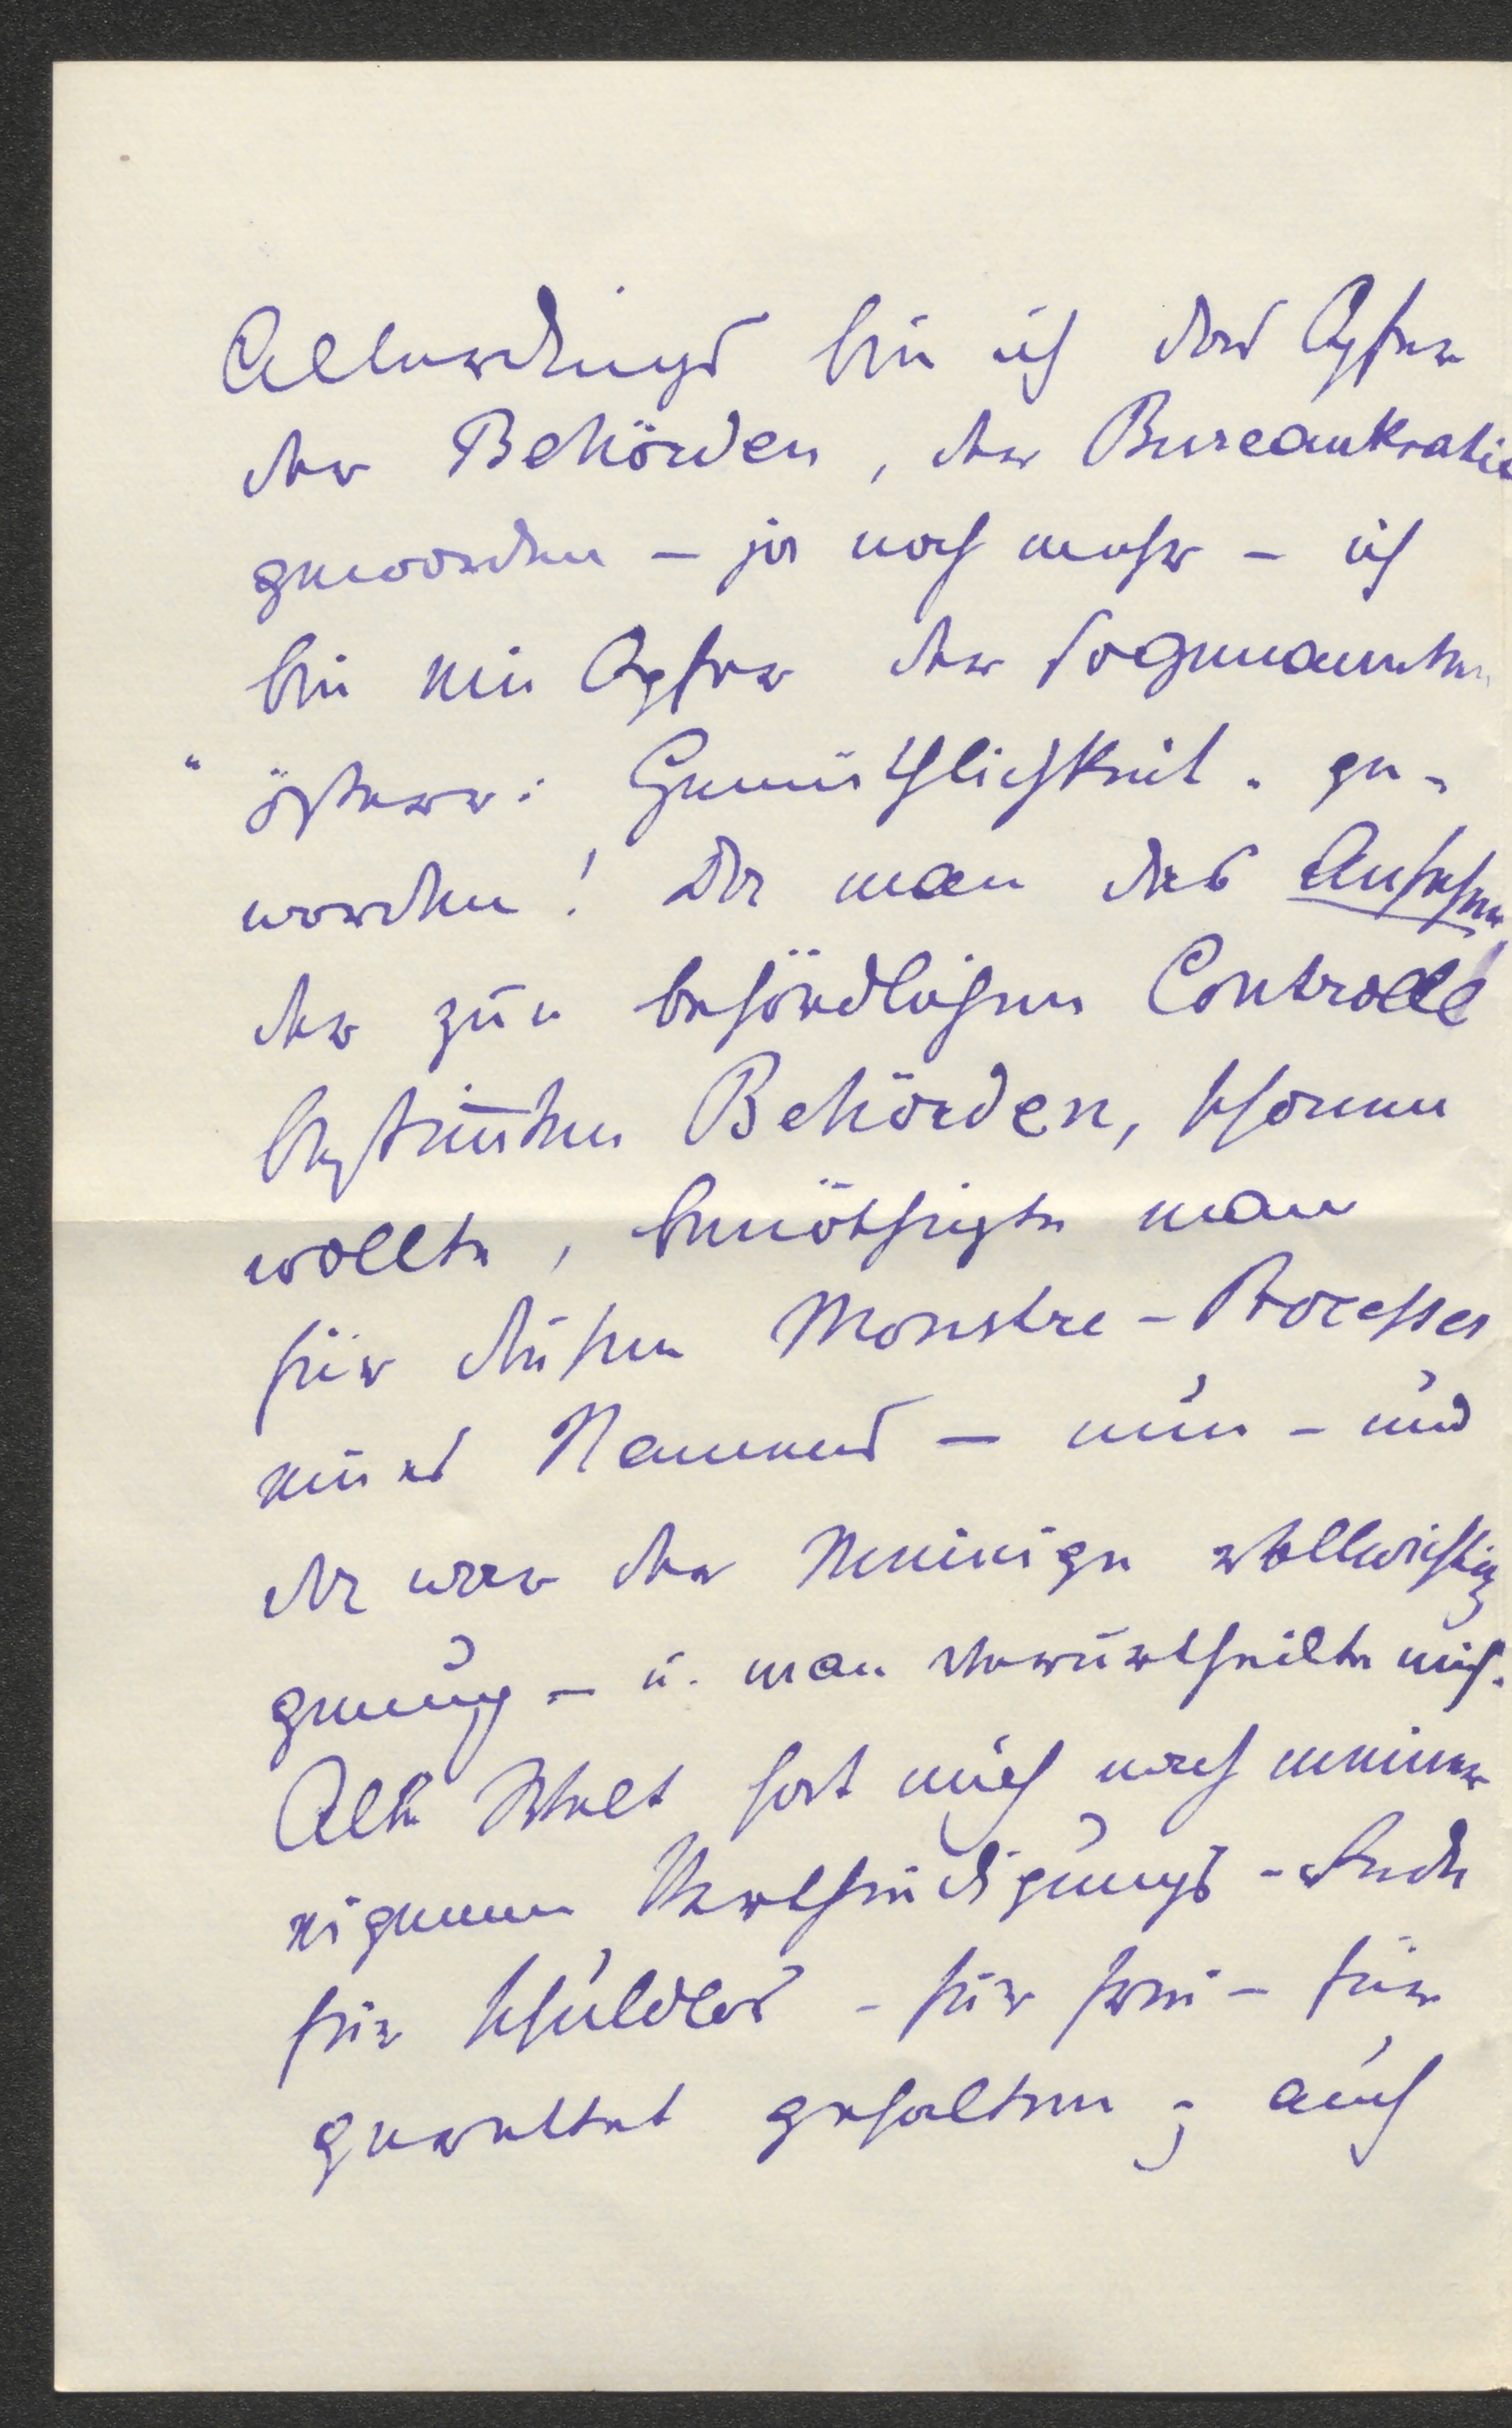 Allerdings bin ich das Opfer
der Behörden, der Bureaukratie
geworden – ja noch mehr – ich
bin ein Opfer der sogenannten
"österr: Gemüthlichkeit" ge-
worden! Da man das Ansehen
der zur behördlichen Controlle
bestim̄ten Behörden, schonen
wollte, benöthigte man
für diesen Monstre-Processes
eines Namens – nun – und
da war der Meinige vollwichtig
genug – u. man verurtheilte mich.
Alle Welt hat mich nach meiner
eigenen Vertheidigungs-Rede
für schuldlos – für frei – für
gerettet gehalten; auch